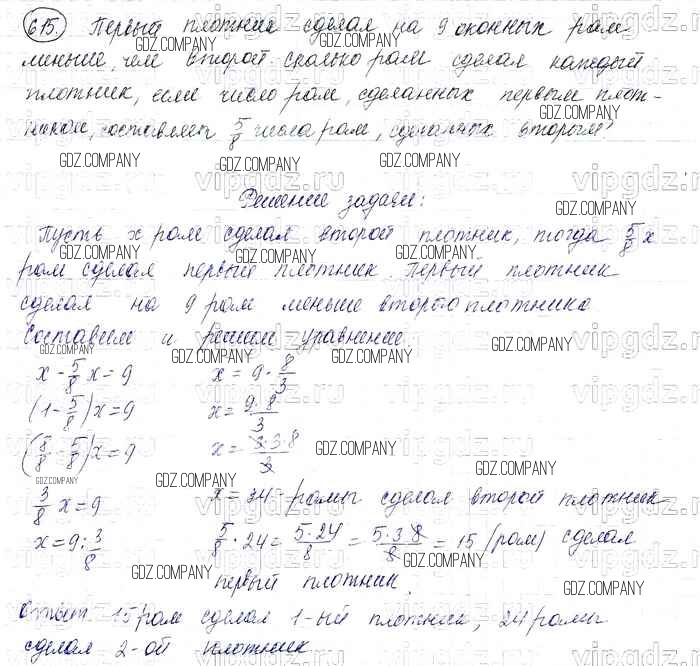 615. Первый плотник сделал на 9 оконных рам
меньше, чем второй. Сколько рам сделал каждый
плотник, если число рам, сделанных первым плот-
ником, составляет 5/8 числа рам, сделанных вторым?
Решение задачи:
Пусть x рам сделал второй плотник, тогда 5/8 x
рам сделал первый плотник. Первый плотник
сделал на 9 рам меньше второго плотника.
Составим и решим уравнение.
x - 5/8 x = 9
(1 - 5/8) x = 9
(8/8 - 5/8) x = 9
3/8 x = 9
x = 9 : 3/8
x = 9 · 8/3
x = 9·8/3
x = 3·3·8/3
x = 34 - рамы сделал второй плотник
5/8 · 24 = 5·24/8 = 5·3·8/8 = 15 (рам) сделал
первый плотник.
Ответ: 15 рам сделал 1-ый плотник, 24 рамы
сделал 2-ой плотник
GDZ.COMPANY
vipgdz.ru